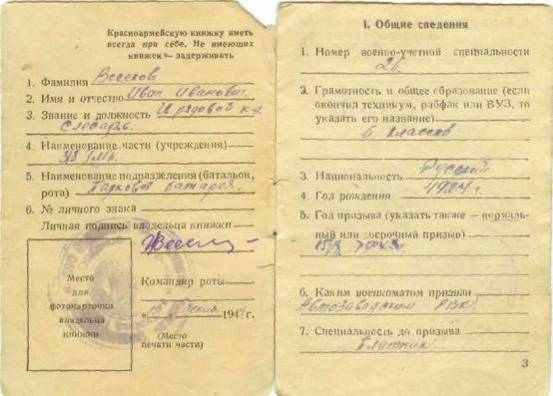 Красноармейскую книжку иметь
всегда при себе. Не имеющих
книжек — задерживать
1. Фамилия
2. Имя и отчество Иван Иванович
3. Звание и должность рядовой
Слесарь
4. Наименование части (учреждения)
5. Наименование подразделения (батальон,
рота) Парковая батарея
6. № личного знака
Личная подпись владельца книжки
Место
для
фотокарточки
владельца
книжки
Командир роты
194 г.
(Место
печати части)
I. Общие сведения
1. Номер военно-учетной специальности
26
2. Грамотность и общее образование (если
окончил техникум, рабфак или ВУЗ, то
указать его название)
6 классов
3. Национальность Русский
4. Год рождения
5. Год призыва (указать также — нормаль-
ный или досрочный призыв)
6. Каким военкоматом призван
Автозаводским РВК
7. Специальность до призыва
Плотник
3